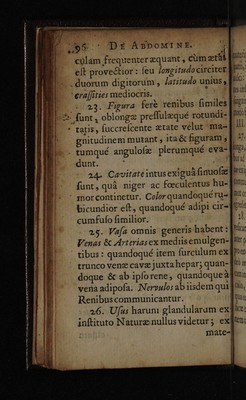 96 DE ABDOMINE.
culam frequenter æquant, cùm ætas
est provectior: seu longitudo circiter
duorum digitorum, latitudo unius,
crassities mediocris.
23. Figura ferè renibus similes
sunt, oblongæ pressulæque rotundi-
tatis, succrescente ætate velut ma-
gnitudinem mutant, ita & figuram,
tumquè angulosæ plerumquè eva-
dunt.
24. Cavitate intus exiguâ sinuosæ
sunt, quâ niger ac fœculentus hu-
mor continetur. Color quandoquè ru-
bicundior est, quandoquè adipi cir-
cumfuso similior.
25. Vasa omnis generis habent:
Venas & Arterias ex mediis emulgen-
tibus: quandoquè item surculum ex
trunco venæ cavæ juxta hepar; quan-
doque & ab ipso rene, quandoque à
vena adiposa. Nervulos ab iisdem qui
Renibus communicantur.
26. Usus harum glandularum ex
instituto Naturæ nullus videtur; ex
mate-